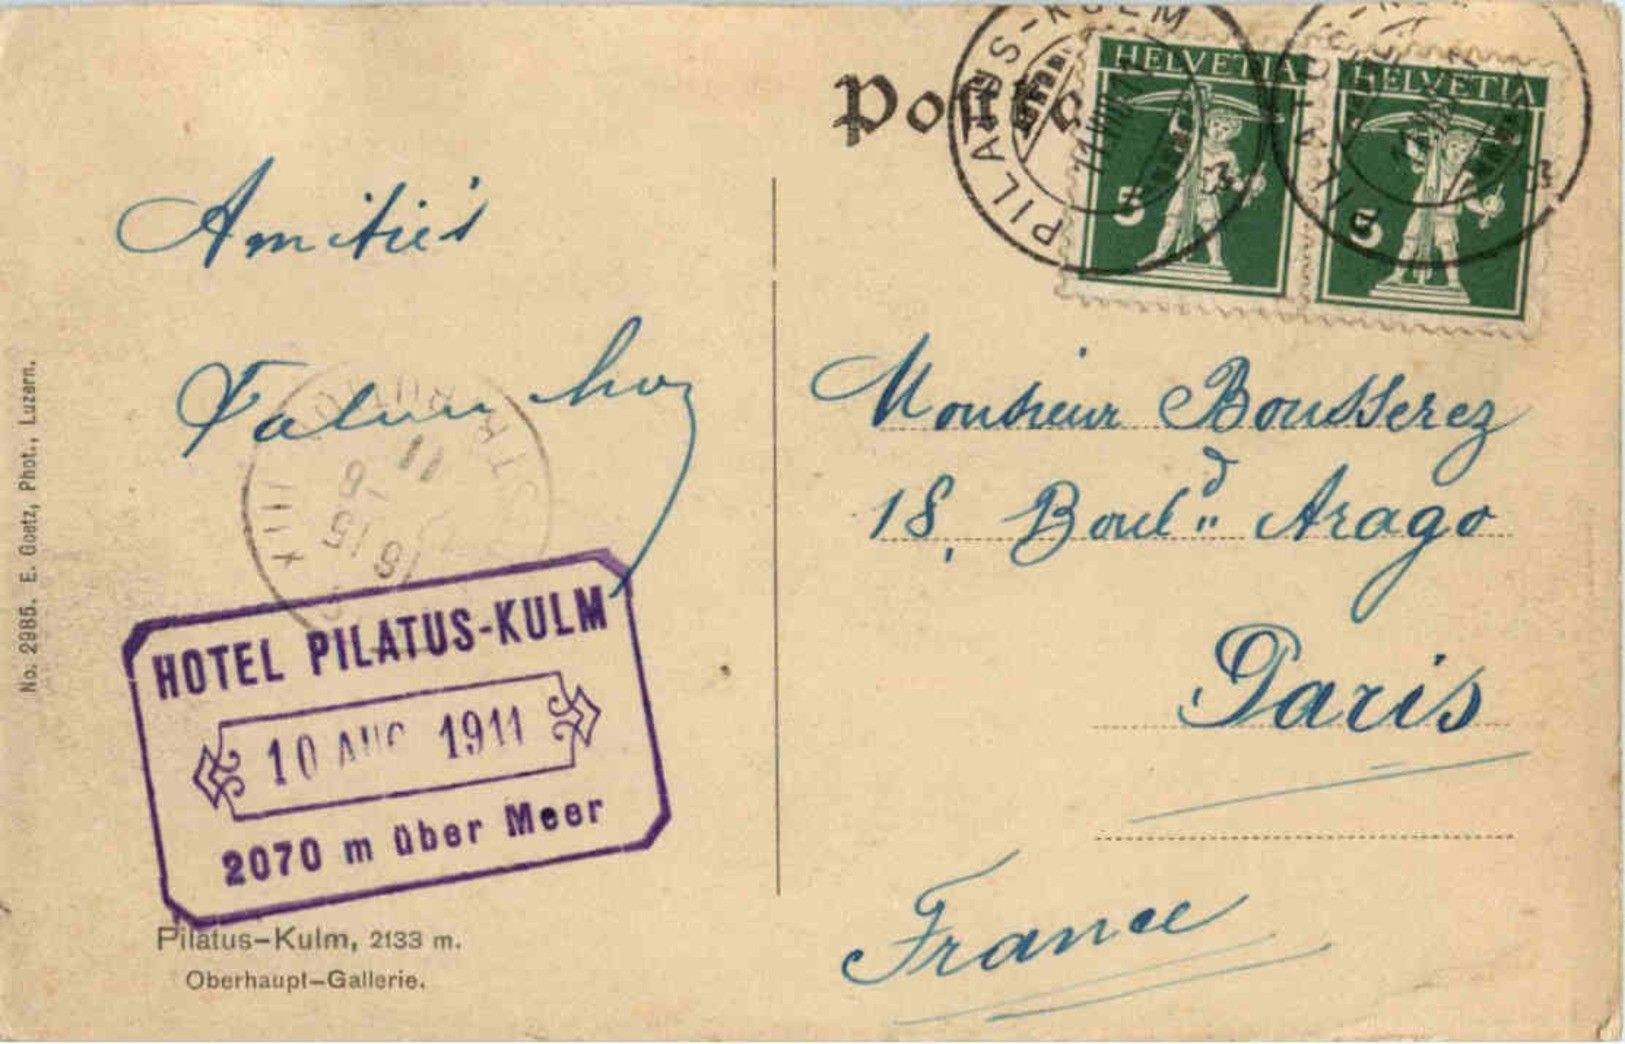 Amitiés
HOTEL PILATUS-KULM
10 AUG 1911
2070 m über Meer
Pilatus-Kulm, 2133 m.
Oberhaupt-Gallerie.
No. 2985. E. Goetz, Phot., Luzern.
PILATUS-KULM
11.VIII
HELVETIA
5
HELVETIA
5
PILATUS-K
Monsieur Bousserez
18, Boul.d Arago
Paris
France